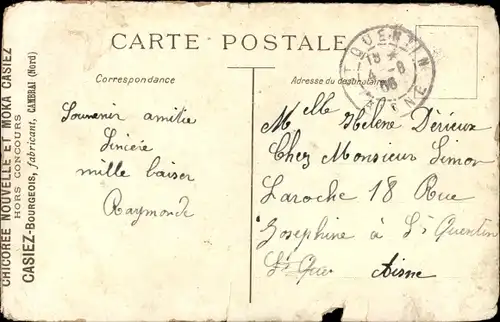 CARTE POSTALE
Correspondance
Souvenir amitié
Sincère
mille baiser
Raymonde
Adresse du destinataire
Melle Hélène Dérieux
Chez Monsieur Simon
Laroche 18 Rue
Josephine à St Quentin
St Quen Aisne
ST QUENTIN
AISNE
CHICORÉE NOUVELLE ET MOKA CASIEZ
HORS CONCOURS
CASIEZ-BOURGEOIS, fabricant, CAMBRAI (Nord)